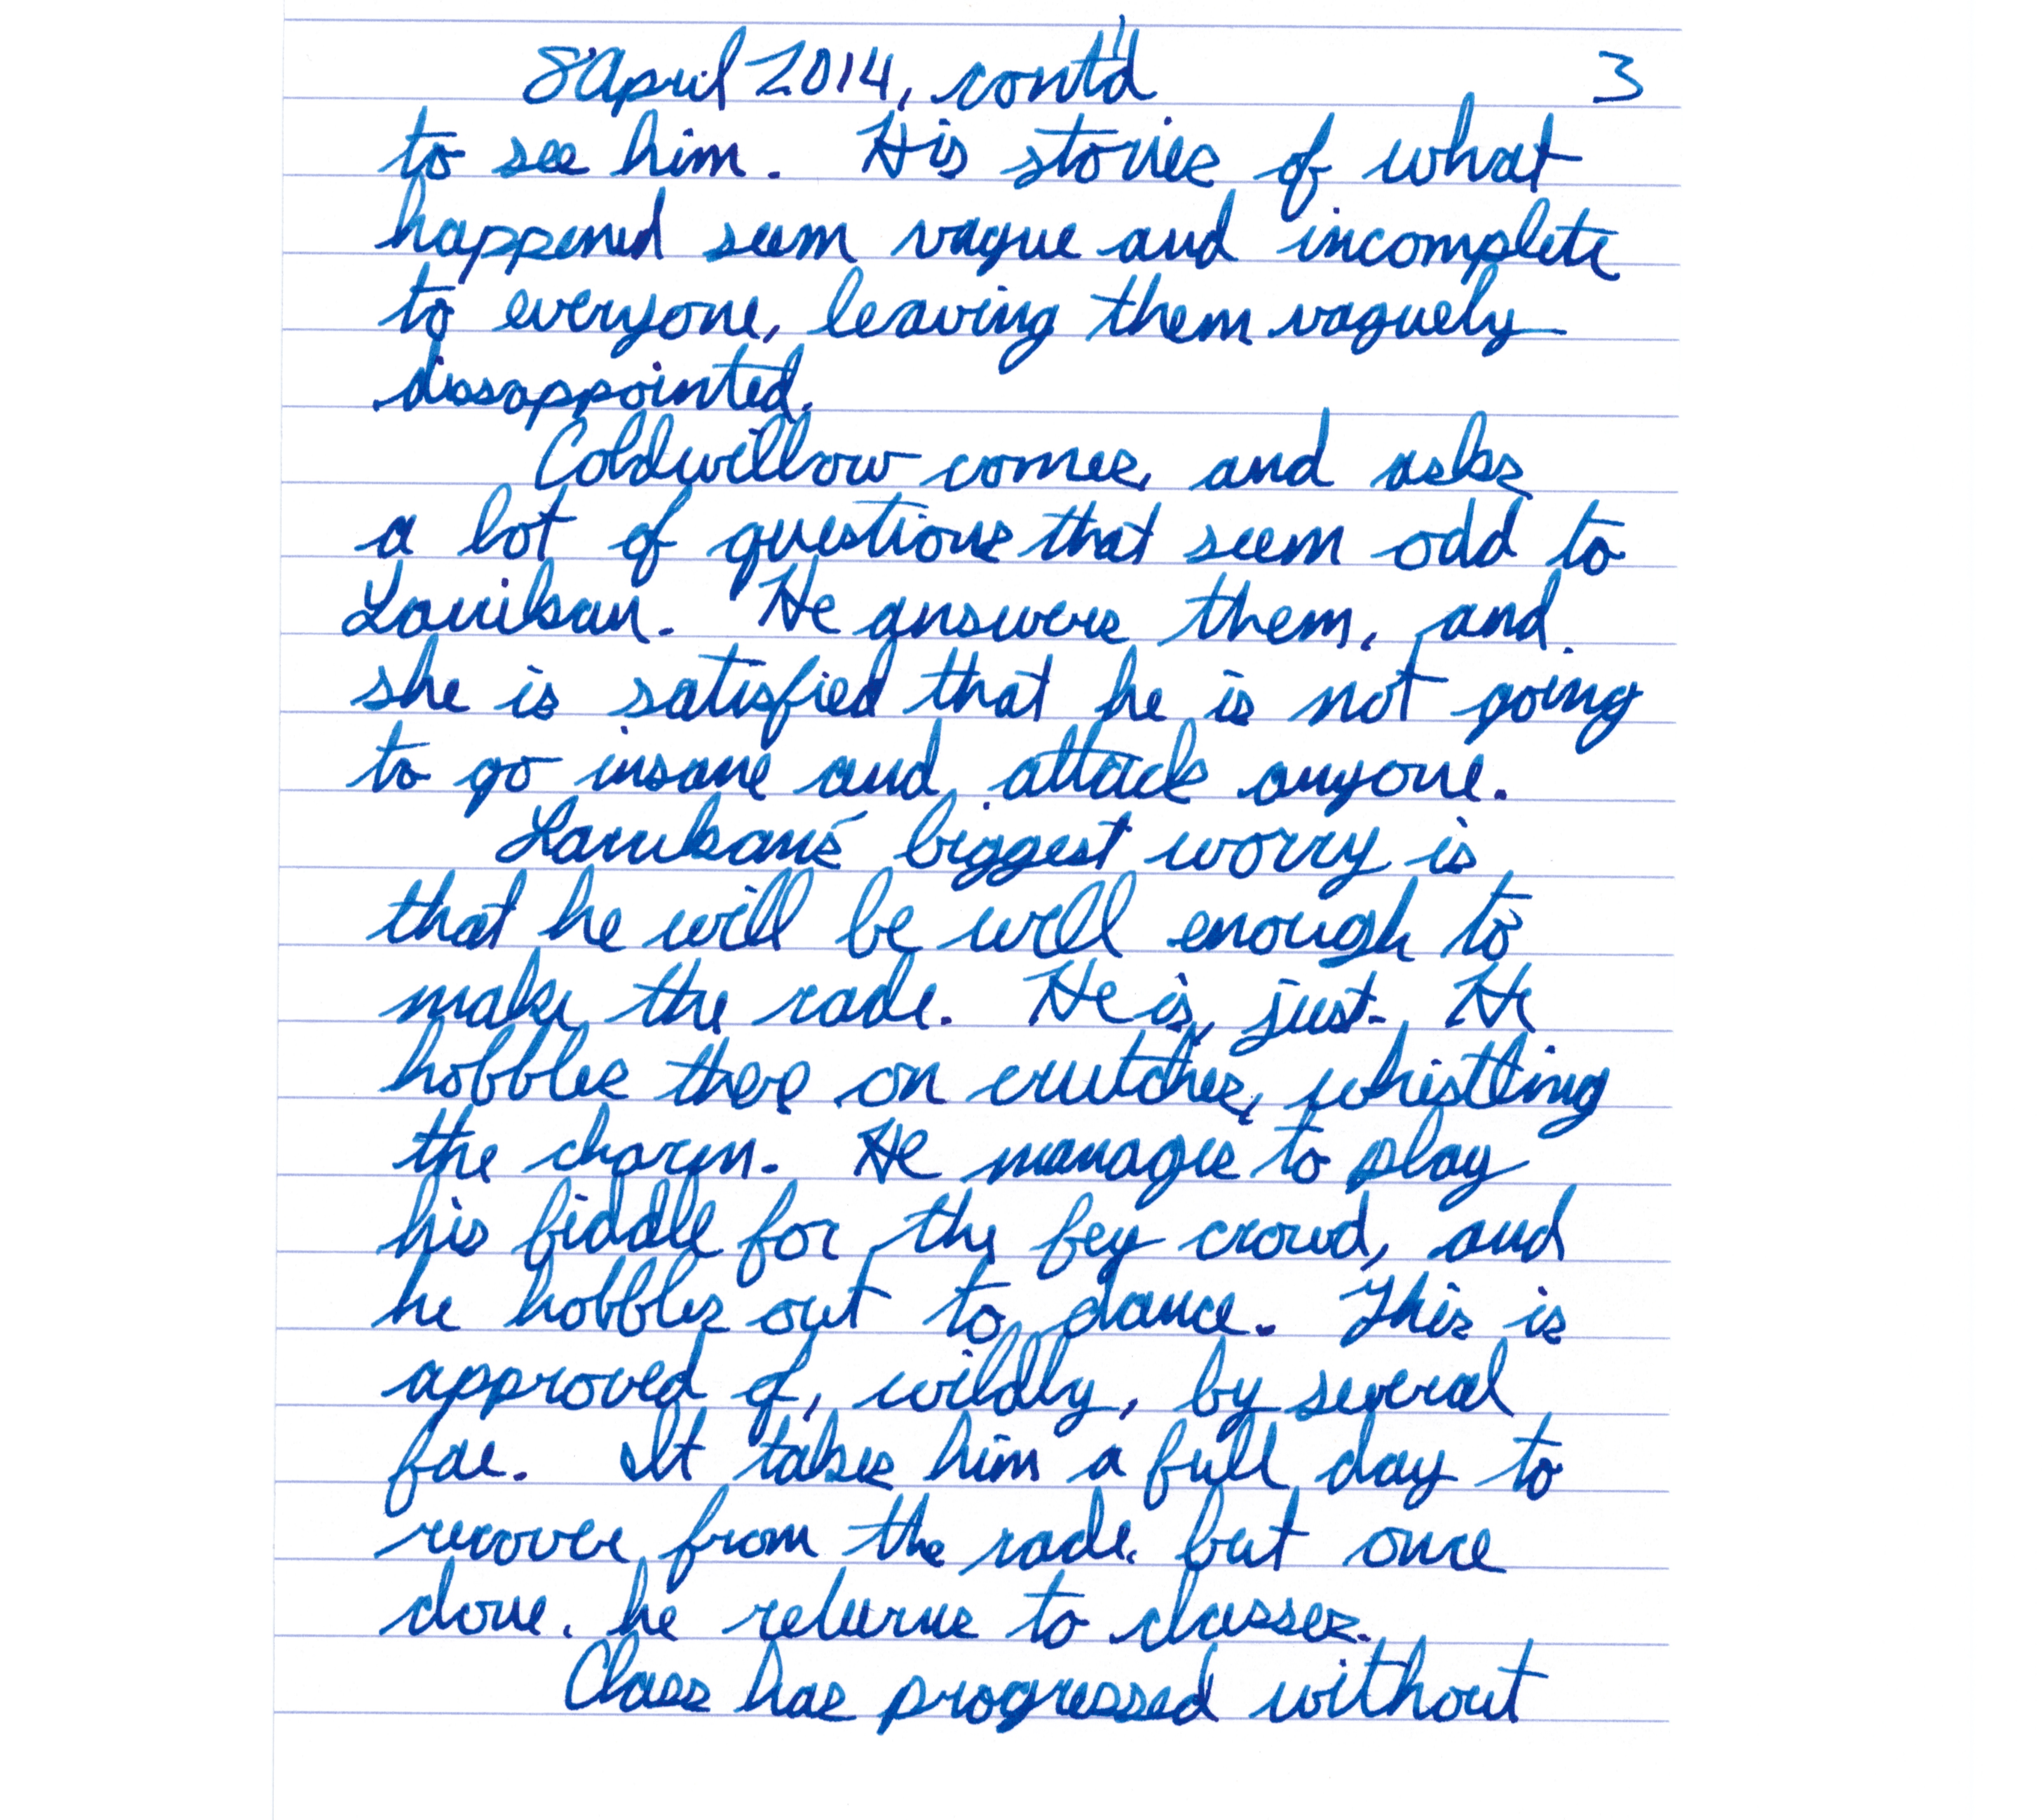 8 April 2014, cont'd 3
to see him. His stories of what
happened seem vague and incomplete
to everyone, leaving them vaguely
disappointed.
Coldwillow comes, and asks
a lot of questions that seem odd to
He answers them, and
she is satisfied that he is not going
to go insane and attack anyone.
biggest worry is
that he will be well enough to
make the rade. He is, just. He
hobbles there on crutches, whistling
the charm. He manages to play
his fiddle for the fey crowd, and
he hobbles out to dance. This is
approved of, wildly, by several
fae. It takes him a full day to
recover from the rade, but once
done, he returns to classes.
Class has progressed without